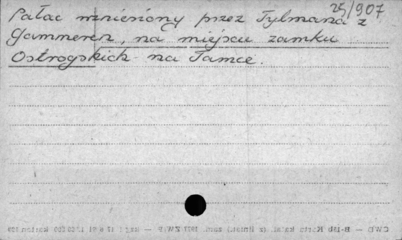 25/907
Pałac wzniesiony przez Tylmana z
Gammeren, na miejscu zamku
Ostrogskich na Tamce.